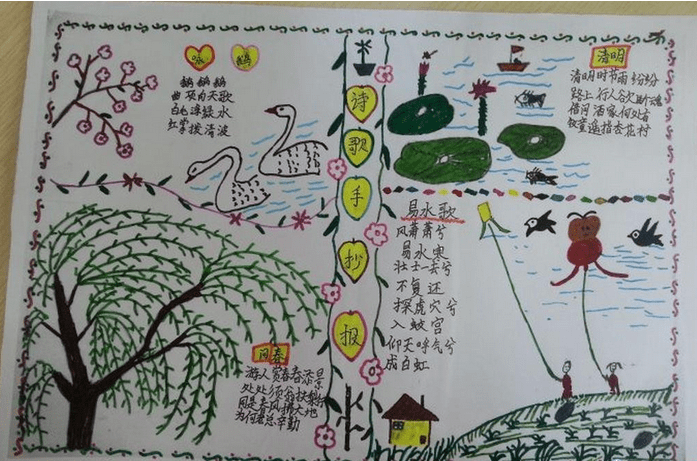 咏 鹅
鹅鹅鹅
曲项向天歌
白毛浮绿水
红掌拨清波
诗
歌
手
抄
报
清明
清明时节雨纷纷
路上行人欲断魂
借问酒家何处有
牧童遥指杏花村
易水歌
风萧萧兮
易水寒
壮士一去兮
不复还
探虎穴兮
入蛟宫
仰天呼气兮
成白虹
问春
游人赏春春添景
处处须翁扶犁
同是春风播大地
为何君总辛勤